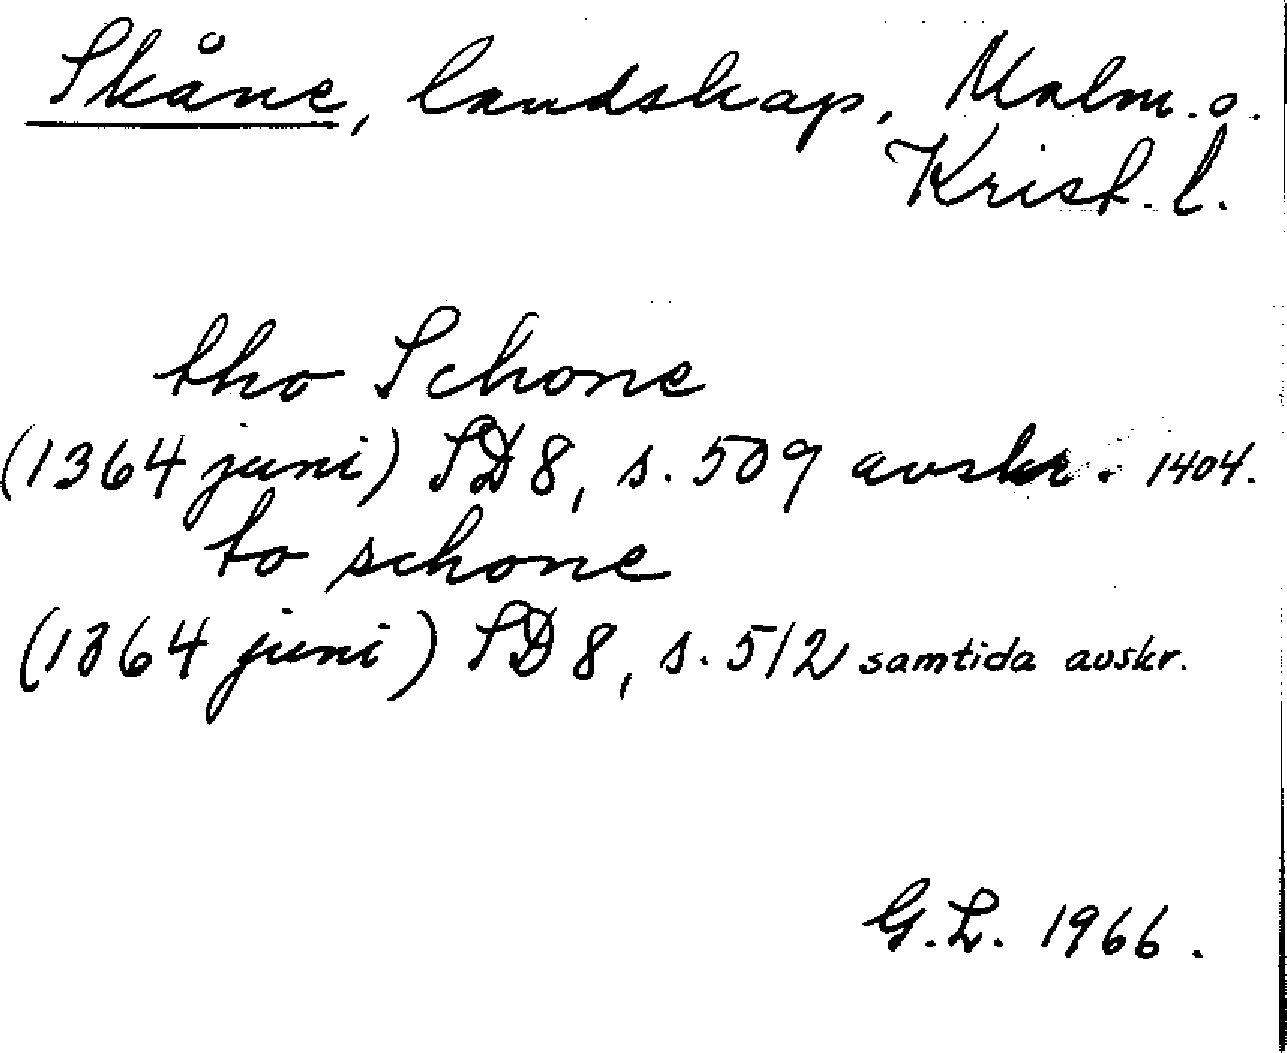 Skåne, landskap, Malm. o.
Krist. l.
tho Schone
(1364 juni) SD 8, s. 509 avskr. 1404.
to schone
(1364 juni) SD 8, s. 512 samtida avskr.
G.L. 1966.